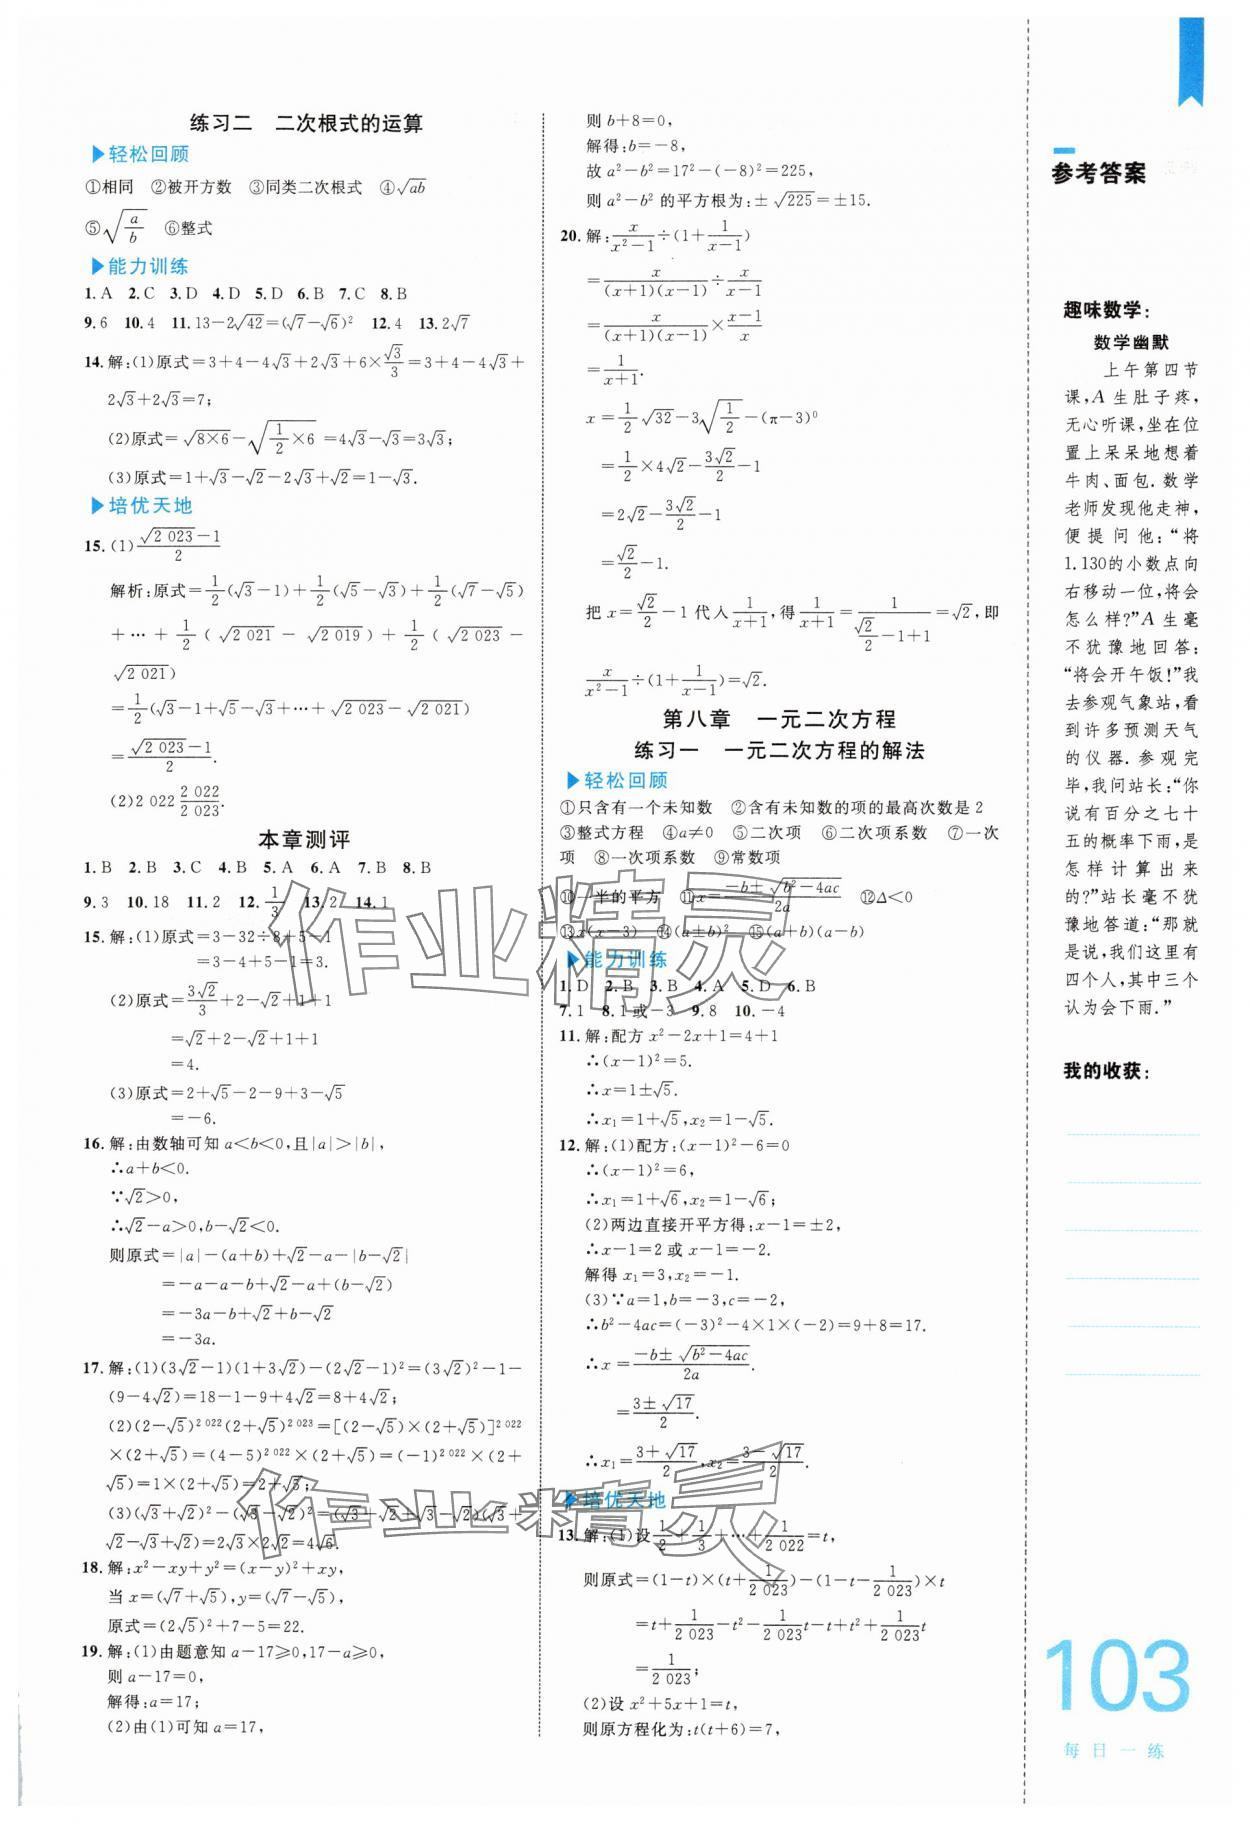 练习二　二次根式的运算
▶轻松回顾
①相同　②被开方数　③同类二次根式　④√ab
⑤√(a/b)　⑥整式
▶能力训练
1. A　2. C　3. D　4. D　5. D　6. B　7. C　8. B
9. 6　10. 4　11. 13－2√42＝(√7－√6)²　12. 4　13. 2√7
14. 解:(1)原式＝3＋4－4√3＋2√3＋6×√3/3＝3＋4－4√3＋
2√3＋2√3＝7;
(2)原式＝√(8×6)－√(1/2×6)＝4√3－√3＝3√3;
(3)原式＝1＋√3－√2－2√3＋√2＝1－√3.
▶培优天地
15. (1)(√2 023－1)/2
解析:原式＝1/2(√3－1)＋1/2(√5－√3)＋1/2(√7－√5)
＋…＋1/2(√2 021－√2 019)＋1/2(√2 023－
√2 021)
＝1/2(√3－1＋√5－√3＋…＋√2 023－√2 021)
＝(√2 023－1)/2.
(2)2 022 2 022/2 023.
本章测评
1. B　2. B　3. C　4. B　5. A　6. A　7. B　8. B
9. 3　10. 18　11. 2　12. 1/3　13. 2　14. 1
15. 解:(1)原式＝3－32÷8＋5－1
＝3－4＋5－1＝3.
(2)原式＝3√2/3＋2－√2＋1＋1
＝√2＋2－√2＋1＋1
＝4.
(3)原式＝2＋√5－2－9＋3－√5
＝－6.
16. 解:由数轴可知 a＜b＜0,且|a|＞|b|,
∴a＋b＜0.
∵√2＞0,
∴√2－a＞0,b－√2＜0.
则原式＝|a|－(a＋b)＋√2－a－|b－√2|
＝－a－a－b＋√2－a＋(b－√2)
＝－3a－b＋√2＋b－√2
＝－3a.
17. 解:(1)(3√2－1)(1＋3√2)－(2√2－1)²＝(3√2)²－1－
(9－4√2)＝18－1－9＋4√2＝8＋4√2;
(2)(2－√5)^2 022(2＋√5)^2 023＝[(2－√5)×(2＋√5)]^2 022
×(2＋√5)＝(4－5)^2 022×(2＋√5)＝(－1)^2 022×(2＋
√5)＝1×(2＋√5)＝2＋√5;
(3)(√3＋√2)²－(√3－√2)²＝(√3＋√2＋√3－√2)(√3＋
√2－√3＋√2)＝2√3×2√2＝4√6.
18. 解:x²－xy＋y²＝(x－y)²＋xy,
当 x＝(√7＋√5),y＝(√7－√5),
原式＝(2√5)²＋7－5＝22.
19. 解:(1)由题意知 a－17≥0,17－a≥0,
则 a－17＝0,
解得:a＝17;
(2)由(1)可知 a＝17,
则 b＋8＝0,
解得:b＝－8,
故 a²－b²＝17²－(－8)²＝225,
则 a²－b² 的平方根为:±√225＝±15.
20. 解:x/(x²－1)÷(1＋1/(x－1))
＝x/((x＋1)(x－1))÷x/(x－1)
＝x/((x＋1)(x－1))×(x－1)/x
＝1/(x＋1).
x＝1/2√32－3√(1/2)－(π－3)⁰
＝1/2×4√2－3√2/2－1
＝2√2－3√2/2－1
＝√2/2－1.
把 x＝√2/2－1 代人1/(x＋1),得1/(x＋1)＝1/(√2/2－1＋1)＝√2,即
x/(x²－1)÷(1＋1/(x－1))＝√2.
第八章　一元二次方程
练习一　一元二次方程的解法
▶轻松回顾
①只含有一个未知数　②含有未知数的项的最高次数是 2
③整式方程　④a≠0　⑤二次项　⑥二次项系数　⑦一次
项　⑧一次项系数　⑨常数项
⑩一半的平方　⑪x＝(－b±√(b²－4ac))/2a　⑫Δ＜0
⑬x(x－3)　⑭(a±b)²　⑮(a＋b)(a－b)
▶能力训练
1. D　2. B　3. B　4. A　5. D　6. B
7. 1　8. 1 或－3　9. 8　10. －4
11. 解:配方 x²－2x＋1＝4＋1
∴(x－1)²＝5.
∴x＝1±√5.
∴x₁＝1＋√5,x₂＝1－√5.
12. 解:(1)配方:(x－1)²－6＝0
∴(x－1)²＝6,
∴x₁＝1＋√6,x₂＝1－√6;
(2)两边直接开平方得:x－1＝±2,
∴x－1＝2 或 x－1＝－2.
解得 x₁＝3,x₂＝－1.
(3)∵a＝1,b＝－3,c＝－2,
∴b²－4ac＝(－3)²－4×1×(－2)＝9＋8＝17.
∴x＝(－b±√(b²－4ac))/2a.
＝(3±√17)/2.
∴x₁＝(3＋√17)/2,x₂＝(3－√17)/2.
▶培优天地
13. 解:(1)设1/2＋1/3＋…＋1/2 022＝t,
则原式＝(1－t)×(t＋1/2 023)－(1－t－1/2 023)×t
＝t＋1/2 023－t²－1/2 023t－t＋t²＋1/2 023t
＝1/2 023;
(2)设 x²＋5x＋1＝t,
则原方程化为:t(t＋6)＝7,
参考答案
趣味数学:
数学幽默
上午第四节
课,A 生肚子疼,
无心听课,坐在位
置上呆呆地想着
牛肉、面包. 数学
老师发现他走神,
便提问他:“将
1.130的小数点向
右移动一位,将会
怎么样?”A 生毫
不犹豫地回答:
“将会开午饭!”我
去参观气象站,看
到许多预测天气
的仪器. 参观完
毕,我问站长:“你
说有百分之七十
五的概率下雨,是
怎样计算出来
的?”站长毫不犹
豫地答道:“那就
是说,我们这里有
四个人,其中三个
认为会下雨.”
我的收获:
103
每日一练
作业精灵
作业精灵